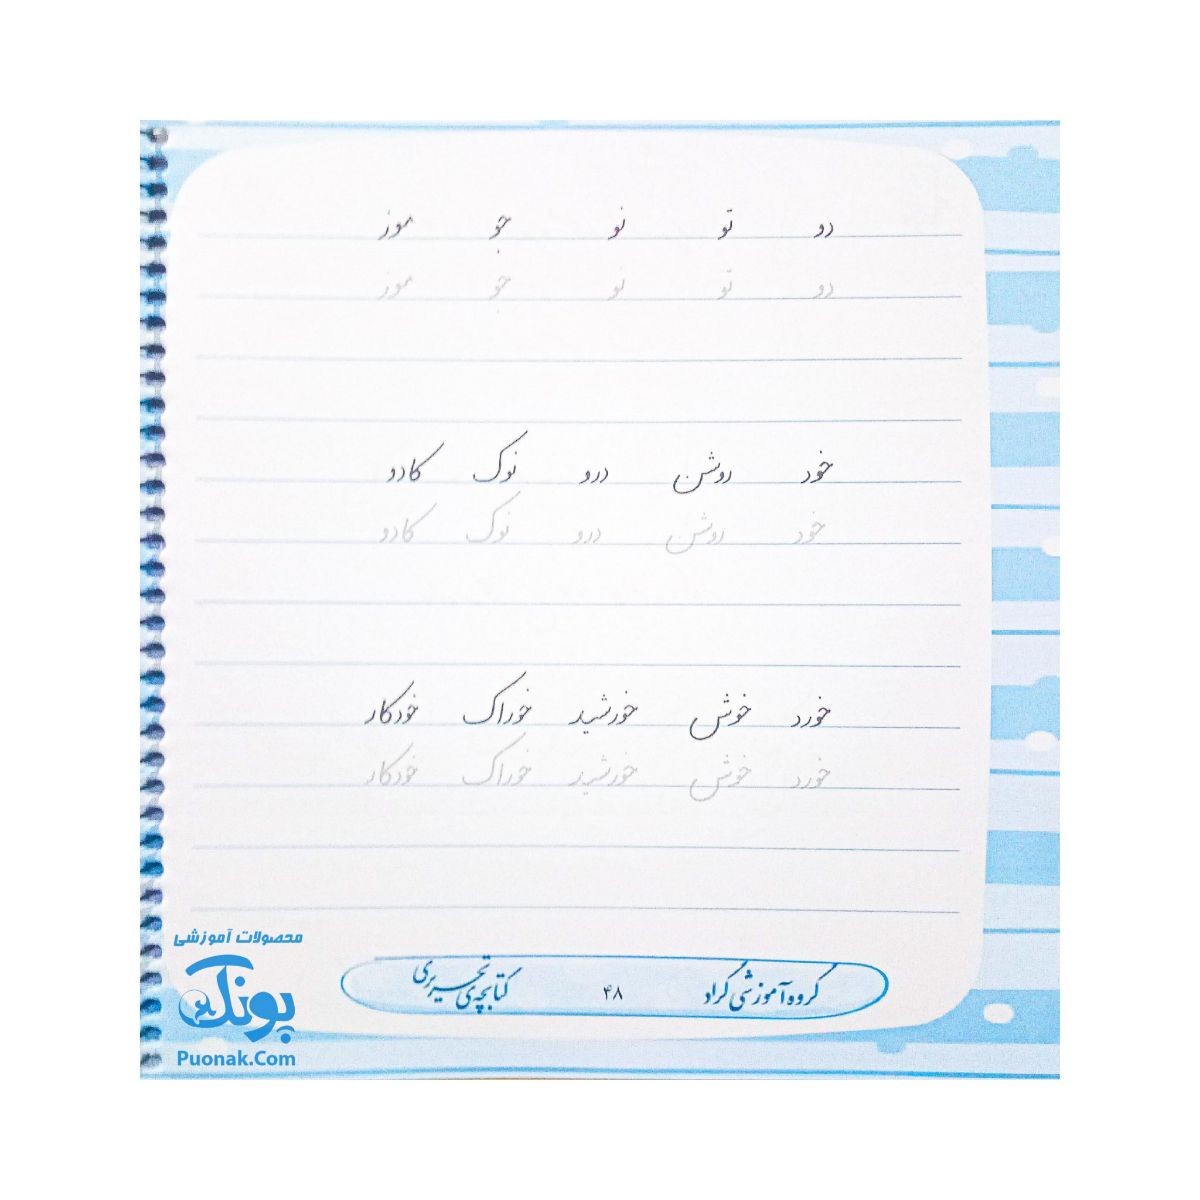 دو تو نو جو موز
دو تو نو جو موز
خود روشن درو نوک کادو
خود روشن درو نوک کادو
خورد خوش خورشید خوراک خودکار
خورد خوش خورشید خوراک خودکار
گروه آموزشی گراد ۴۸ کتابچه‌ی تحریری
محصولات آموزشی
پونک
Puonak.Com